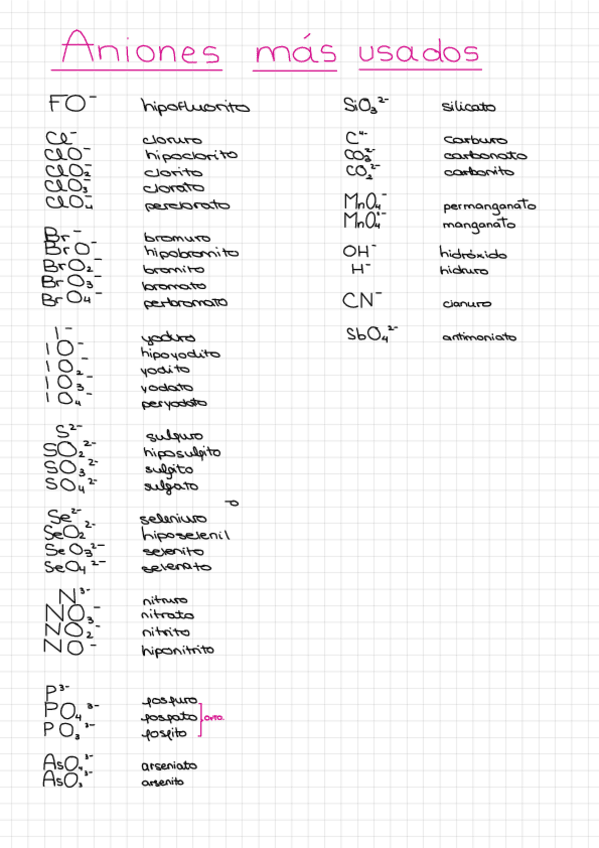 Aniones más usados
FO⁻ hipofluorito
Cl⁻ cloruro
ClO⁻ hipoclorito
ClO₂⁻ clorito
ClO₃⁻ clorato
ClO₄⁻ perclorato
Br⁻ bromuro
BrO⁻ hipobromito
BrO₂⁻ bromito
BrO₃⁻ bromato
BrO₄⁻ perbromato
I⁻ yoduro
IO⁻ hipoyodito
IO₂⁻ yodito
IO₃⁻ yodato
IO₄⁻ peryodato
S²⁻ sulfuro
SO₂²⁻ hiposulfito
SO₃²⁻ sulfito
SO₄²⁻ sulfato
Se²⁻ seleniuro
SeO₂²⁻ hiposelenil
SeO₃²⁻ selenito
SeO₄²⁻ selenato
N³⁻ nitruro
NO₃⁻ nitrato
NO₂⁻ nitrito
NO⁻ hiponitrito
P³⁻ fosfuro
PO₄³⁻ fosfato orto.
PO₃³⁻ fosfito
AsO₄³⁻ arseniato
AsO₃³⁻ arsenito
SiO₃²⁻ silicato
C⁴⁻ carburo
CO₃²⁻ carbonato
CO₂²⁻ carbonito
MnO₄⁻ permanganato
MnO₄²⁻ manganato
OH⁻ hidróxido
H⁻ hidruro
CN⁻ cianuro
SbO₄²⁻ antimoniato